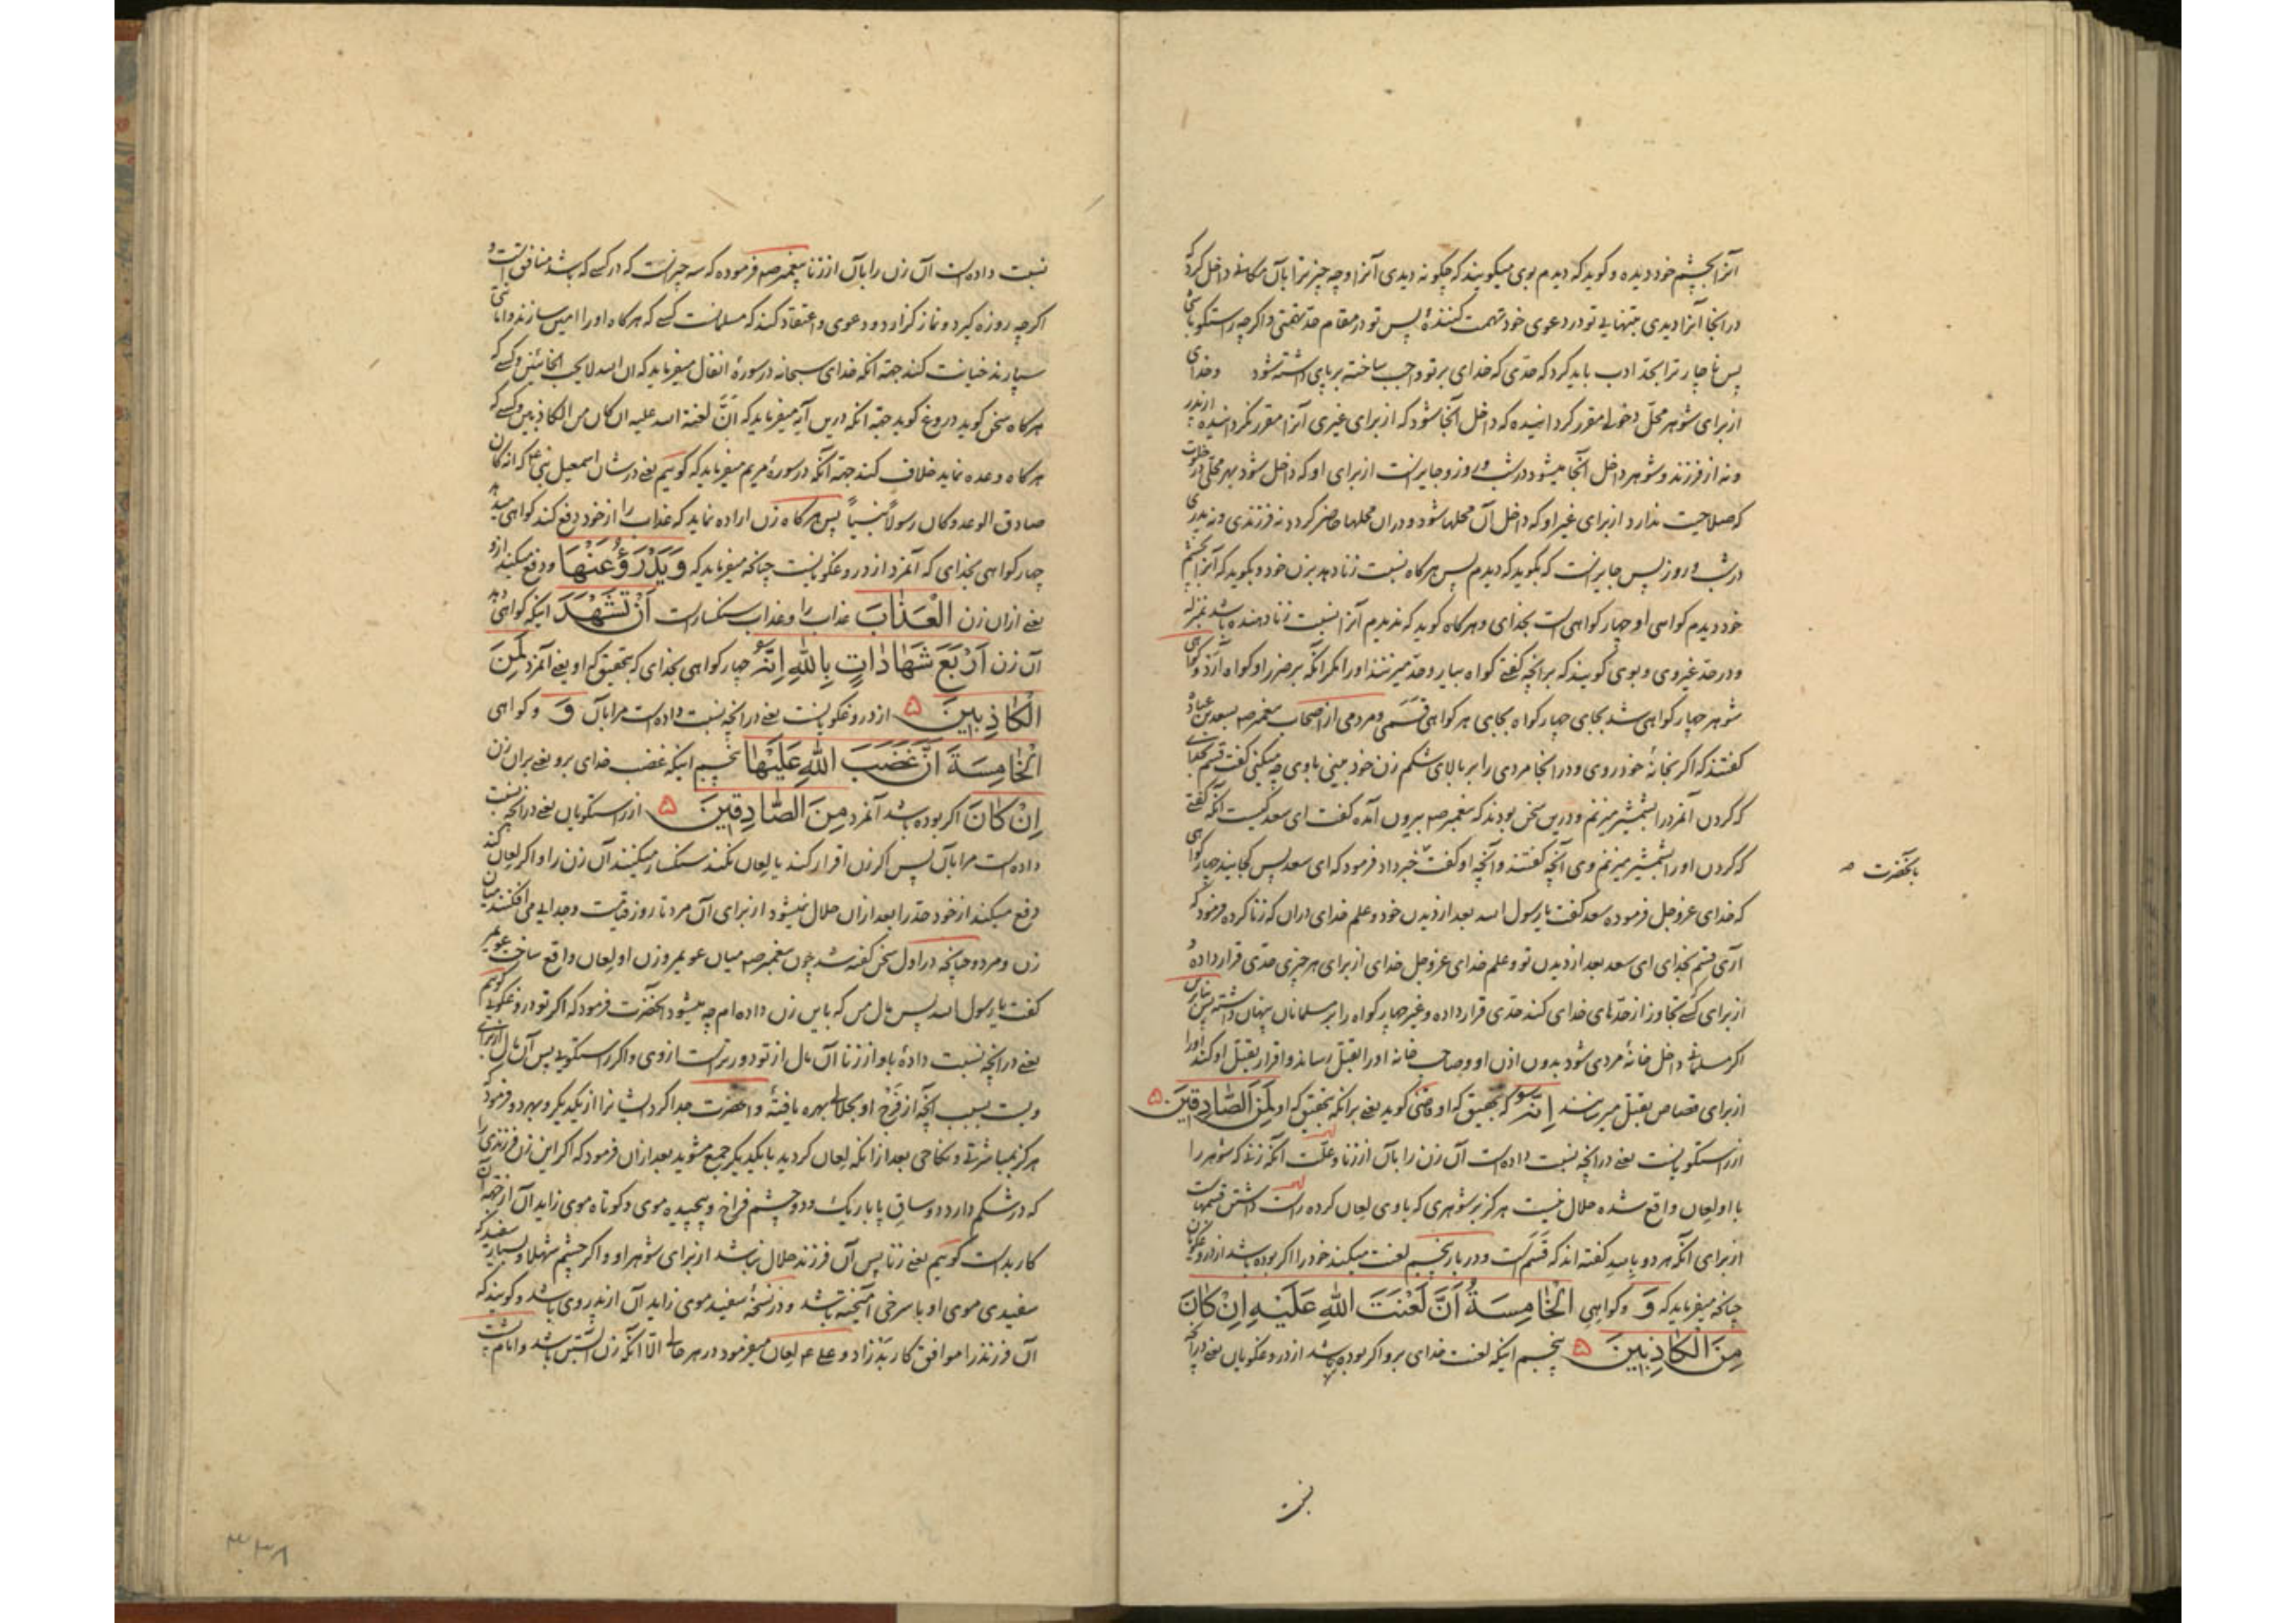 آنرا بچشم خود دیده و کوید که دیدم بوی میکویند که چکونه دیدی آنرا و چه چیز ترا بآن مکان داخل کرد که
در انجا آنرا دیدی بتنهایی تو در دعوی خود تهمت کننده پس تو در مقام حد تهمتی و اکرچه راستکو باشی
پس ناچار ترا بحد ادب باید کرد که حدی که خدای بر تو واجب ساخته بر پای داشته شود و خدای
از برای شوهر محل دخول مقرر کردانیده که داخل آنجا شود که از برای غیری آنرا مقرر نکردانیده از پدر
و نه از فرزند و شوهر داخل آنجا میشود در شب و روز و جایز است از برای او که داخل شود بهر محلی در خلوت
که صلاحیت ندارد از برای غیر او که داخل آن محلها شود و در ان محلها حاضر کردد نه فرزندی و نه پدری
در شب و روز پس جایز است که بکوید که دیدم پس هرکاه نسبت زنا دهد بزن خود و بکوید که آنرا بچشم
خود دیدم کواهی او چهار کواهی است بخدای و هرکاه کوید که ندیدم آنرا نسبت زنا دهنده باشد بمنزله
و در حد غیر وی و بوی کویند که بر انچه کفتی کواه بیار و حد میزنند او را مکر آنکه بر ضرر او کواه آرد و کواهی
شوهر چهار کواهی شد بجای چهار کواه بجای هر کواهی قسمی و مردمی از اصحاب پیغمبر صه بسعد بن عباده
کفتند که اکر بخانهٔ خود روی و در انجا مردی را بر بالای شکم زن خود بینی باوی چه میکنی کفت قسم بخدای
که کردن آنمرد را بشمشیر میزنم و درین سخن بودند که پیغمبر صه بیرون آمده کفت ای سعد کیست آنکه کفتی
که کردن او را بشمشیر میزنم وی آنچه کفتند و آنچه او کفت خبر داد فرمود که ای سعد پس کجایند چهار کواهی
بآنحضرت صه
که خدای عزوجل فرموده سعد کفت یا رسول الله بعد از دیدن خود و علم خدای دران که زنا کرده فرمود که
آری قسم بخدای ای سعد بعد از دیدن تو و علم خدای عزوجل خدای از برای هر چیزی حدی قرار داده و
از برای کسی تجاوز از حدهای خدای کند حدی قرار داده و غیر چهار کواه را بر مسلمانان پنهان داشته پس
اکر مسلمانی داخل خانهٔ مردی شود بدون اذن او و صاحب خانه او را بقتل رساند و اقرار بقتل او کند او را
از برای قصاص بقتل میرسانند اِنَّهُ که بتحقیق که او یعنی کوید یعنی بر انکه بتحقیق که او لَمِنَ الصَّادِقِینَ
از راستکویانست یعنی در انچه نسبت داده است آن زن را بآن از زنا و علت آنکه زنی که شوهر را
با او لعان واقع شده حلال نیست هرکز بر شوهری که باوی لعان کرده است داشتن قسمهاست
از برای آنکه هر دو کفته اند که قسم است و در بار پنجم لعنت میکند خود را اکر بوده باشد از دروغکویان
چنانچه میفرماید که وَ و کواهی الْخَامِسَةُ اَنَّ لَعْنَتَ اللهِ عَلَیْهِ اِنْ کَانَ
مِنَ الْکَاذِبِینَ پنجم اینکه لعنت خدای برو اکر بوده باشد از دروغکویان یعنی در انچه
نسبت
نسبت داده است آن زن را بآن از زنا پیغمبر صه فرموده که سه چیز است که در کسی که باشد منافق است و
اکرچه روزه کیرد و نماز کزارد و دعوی و اعتقاد کند که مسلمانست کسی که هرکاه او را امین سازند و امانتی
سپارند خیانت کند جهة آنکه خدای سبحانه در سورهٔ انفال میفرماید که ان الله لا یحب الخائنین و کسی که
هرکاه سخن کوید دروغ کوید جهة آنکه درین آیه میفرماید که انَّ لعنة الله علیه ان کان من الکاذبین و کسی که
هرکاه وعده نماید خلاف کند جهة آنکه در سورهٔ مریم میفرماید که کویم یعنی در شان اسمعیل نبی که انه کان
صادق الوعد و کان رسولاً نبیّاً پس هرکاه زن اراده نماید که عذاب را از خود دفع کند کواهی میدهد
چهار کواهی بخدای که آنمرد از دروغکویانست چنانچه میفرماید که وَیَدْرَؤُعَنْهَا و دفع میکند ازو
یعنی ازان زن الْعَذَابَ عذاب را و عذاب سنکسار است اَنْ تَشْهَدَ اینکه کواهی دهد
آن زن اَرْبَعَ شَهَادَاتٍ بِاللهِ اِنَّهُ چهار کواهی بخدای که بتحقیق که او یعنی آنمرد لَمِنَ
الْکَاذِبِینَ از دروغکویانست یعنی در انچه نسبت داده است مرا بآن وَ و کواهی
الْخَامِسَةَ اَنَّ غَضَبَ اللهِ عَلَیْهَا پنجم اینکه غضب خدای برو یعنی بران زن
اِنْ کَانَ اکر بوده باشد آنمرد مِنَ الصَّادِقِینَ از راستکویان یعنی در انچه نسبت
داده است مرا بآن پس اکر زن اقرار کند یا لعان نکند سنکسار میکنند آن زن را و اکر لعان کند
دفع میکند از خود حد را بعد ازان حلال نمیشود از برای آن مرد تا روز قیامت و جدایی می افکنند میان
زن و مرد و چنانچه در اول سخن کفته شد چون پیغمبر صه میان عویمر و زن او لعان واقع ساخت عویمر
کفت یا رسول الله پس مال من که باین زن داده ام چه میشود آنحضرت فرمود که اکر تو دروغکویی کویم
یعنی در انچه نسبت دادهٔ باو از زنا آن مال از تو دورتر است از وی و اکر راستکویی پس آن مال از برای
ویست بسبب آنچه از فرج او بحلالی بهره یافتهٔ و آنحضرت جدا کرد ایشانرا از یکدیکر و بهر دو فرمود که
هرکز بمباشرتی و نکاحی بعد از انکه لعان کردید با یکدیکر جمع مشوید بعد ازان فرمود که اکر این زن فرزندی را
که در شکم دارد دو ساق پا باریک و دو چشم فراخ و پیچیده موی و کوتاه موی زاید آن از جهة آن
کار بد است کویم یعنی زنا پس آن فرزند حلال نباشد از برای شوهر او و اکر چشم شهلا و بسیار سفید که
سفیدی موی او با سرخی آمیخته باشد و در نسخهٔ سفید موی زاید آن از پدر وی باشد و کویند که
آن فرزند را موافق کار بد زاد و علی عه لعان میفرمود در هر حالی الا آنکه زن آبستن باشد و امام
۳۳۸